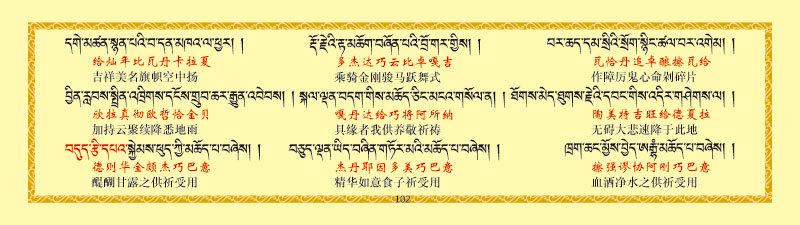 དགེ་མཚན་སྙན་པའི་བ་དན་མཁའ་ལ་ཕྱར། །  རྡོ་རྗེའི་རྟ་མཆོག་བཞོན་པའི་བྲོ་གར་གྱིས། །  བར་ཆད་དམ་སྲིའི་སྲོག་སྙིང་ཚལ་བར་འགེམ། །
给灿年比瓦丹卡拉夏  多杰达巧云比卓嘎吉  瓦恰丹追卓酿擦瓦给
吉祥美名旗帜空中扬  乘骑金刚骏马跃舞式  作障厉鬼心命剁碎片
བྱིན་རླབས་སྤྲིན་འཁྲིགས་དངོས་གྲུབ་ཆར་རྒྱུན་འབེབས། །  སྐལ་ལྡན་བདག་གིས་མཆོད་ཅིང་མངའ་གསོལ་ན། །  ཐོགས་མེད་ཐུགས་རྗེའི་དབང་གིས་འདིར་གཤེགས་ལ། །
欣拉真彻欧哲恰金贝  嘎丹达给巧将阿所纳  陶美特吉旺给德夏拉
加持云聚续降悉地雨  具缘者我供养敬祈祷  无碍大悲速降于此地
བདུད་རྩི་དཔའ་སྐྱེམས་ཕུད་ཀྱི་མཆོད་པ་བཞེས། །  བཅུད་ལྡན་ཡིད་བཞིན་གཏོར་མའི་མཆོད་པ་བཞེས། །  ཁྲག་ཆང་མྱོས་བྱེད་ཨརྒྷཾ་མཆོད་པ་བཞེས། །
德则华金颇杰巧巴意  杰丹耶因多美巧巴意  擦强谬协阿刚巧巴意
醍醐甘露之供祈受用  精华如意食子祈受用  血酒净水之供祈受用
102